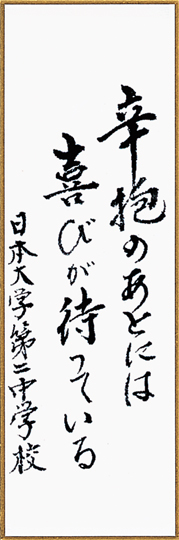 辛抱のあとには
喜びが待っている
日本大学第二中学校